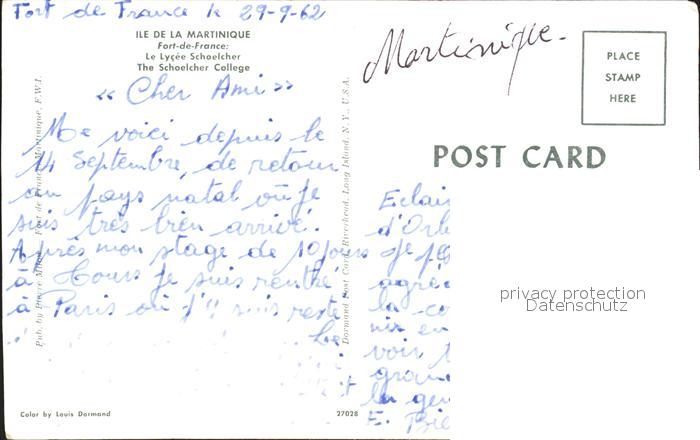 Fort de France le 29-9-62
ILE DE LA MARTINIQUE
Fort-de-France:
Le Lyçée Schoelcher
The Schoelcher College
« Cher Ami »
Me voici depuis le
14 Septembre, de retour
au pays natal où je
suis très bien arrivé.
Après mon stage de 10 jours
à Tours je suis rentré
à Paris où j'
suis resté
Color by Louis Dormand
27028
Pub. by Pierre Milon - Fort de France, Martinique, F.W.I.
Dormand Post Card, Riverhead, Long Island, N. Y., U.S.A.
Martinique.
PLACE
STAMP
HERE
POST CARD
Eclair
d'Orl
Je
agré
la co
nir en
voir
gran
la gen
E. Bie
privacy protection
Datenschutz